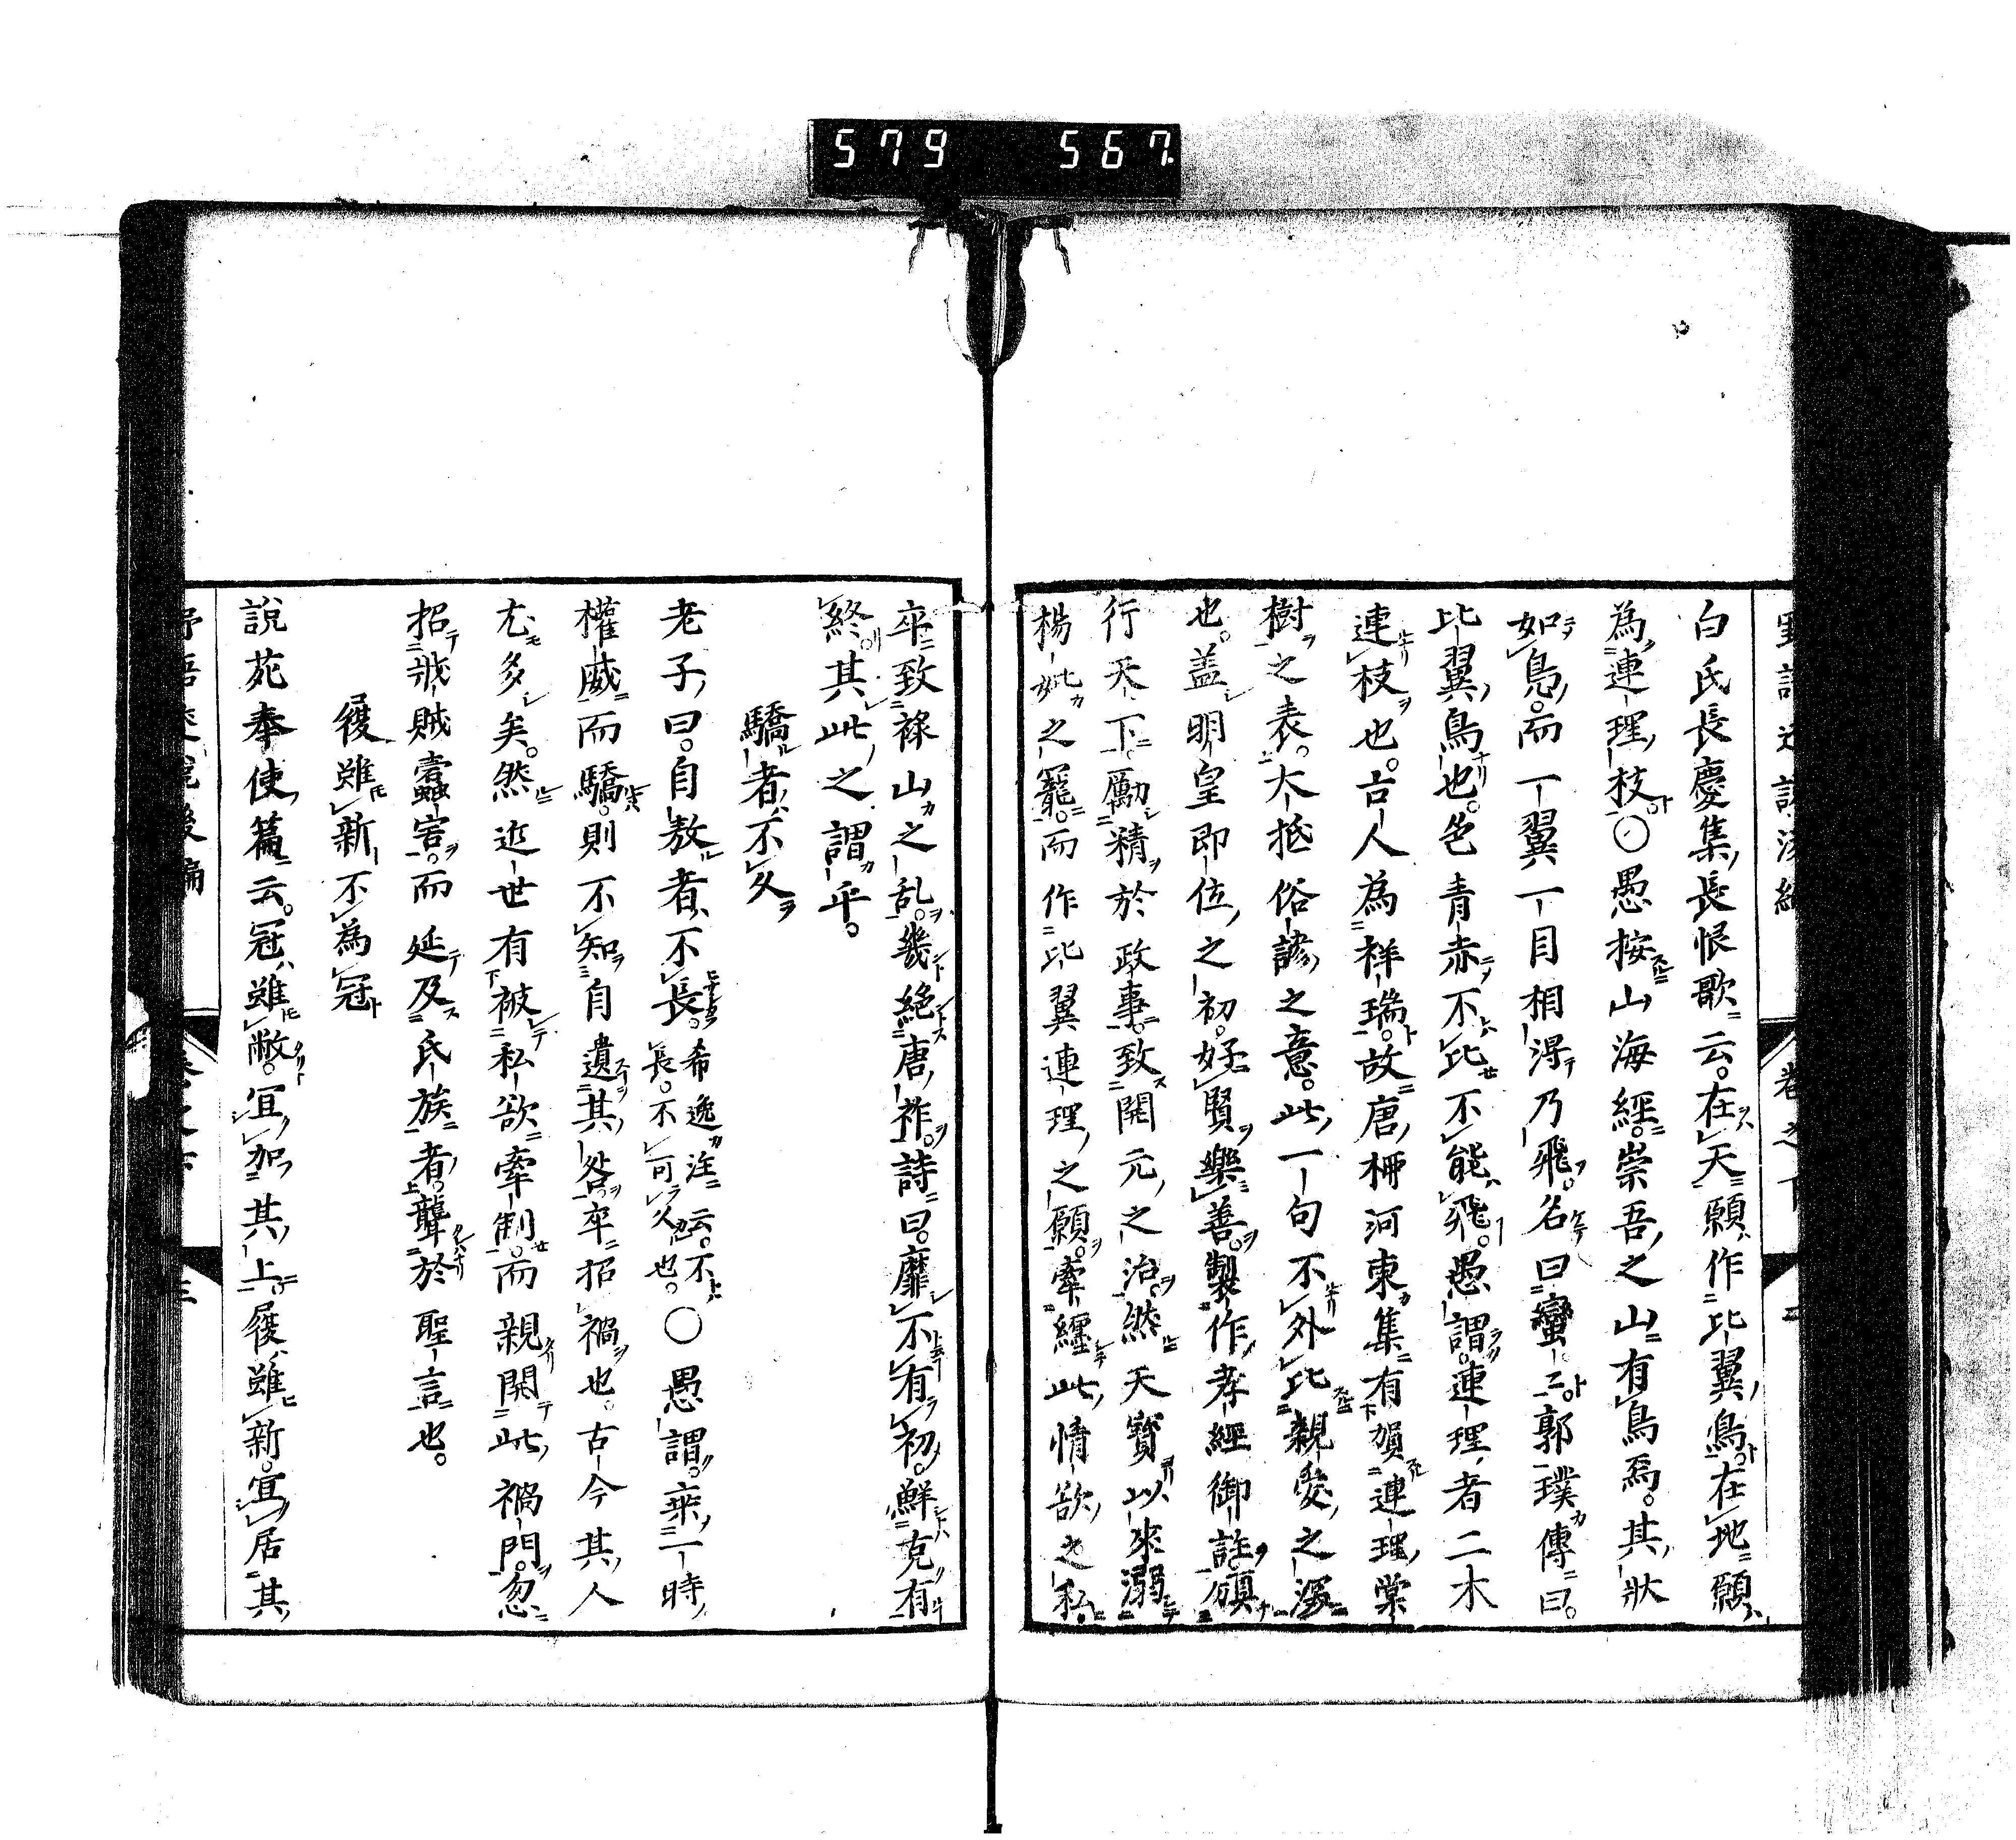 579 567
白氏長慶集長恨歌云。在天願作比翼鳥。在地願
為連理枝。〇愚按山海經。崇吾之山有鳥焉。其狀
如鳧。而一翼一目相得乃飛。名曰蠻蠻。郭璞傳曰。
比翼鳥也。色青赤不比不能飛。愚謂。連理者二木
連枝也。古人為祥瑞。故唐柳河東集有賀連理棠
樹之表。大抵俗諺之意。此一句不外比親愛之深
也。盖明皇即位之初。好賢樂善。製作孝經御註。頗
行天下。勵精於政事。致開元之治。然天寶以來溺
楊妣之寵。而作比翼連理之願。牽纏此情欲之私。
卒致祿山之乱。幾絕唐祚。詩曰。靡不有初。鮮克有
終。其此之謂乎。
驕者不久
老子曰。自敖者不長。希逸注云。不長。不可久也。〇愚謂。乘一時
權威而驕。則不知自遺其咎。卒招禍也。古今其人
尤多矣。然近世有被私欲牽制。而親開此禍門。忽
招戕賊蠧害。而延及氏族者。聾於聖言也。
履雖新不為冠
說苑奉使篇云。冠雖敝。宜加其上。履雖新。宜居其